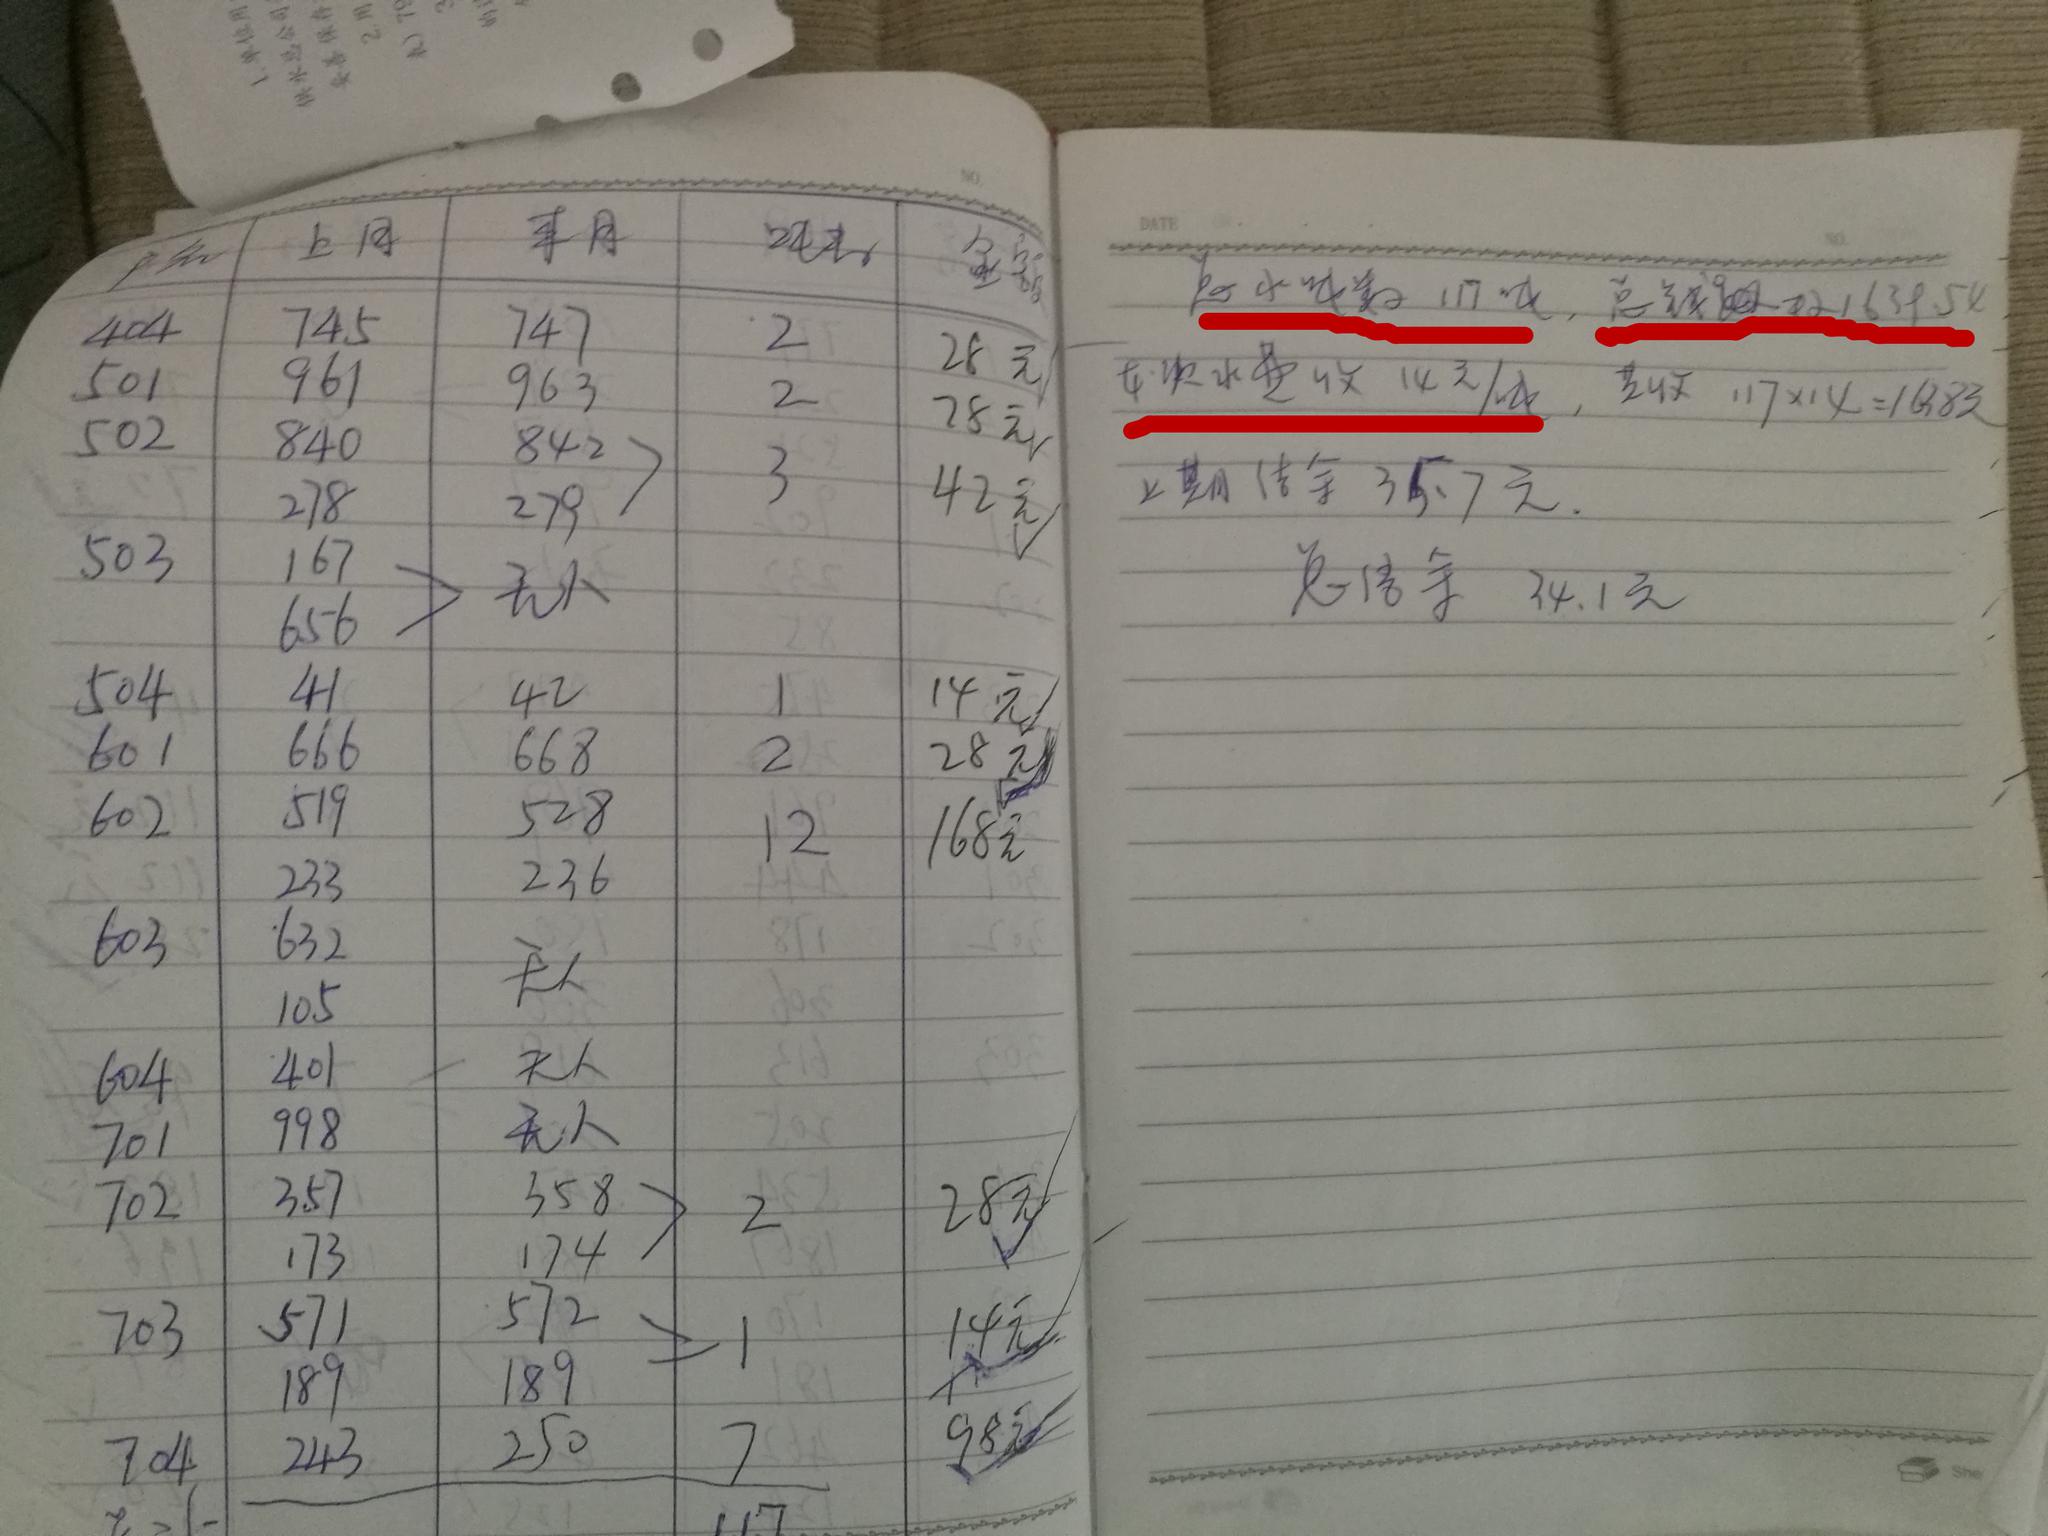 1.单位用
2.用
NO.
户名 上月 本月 吨数 金额
404 745 747 2 28元
501 961 963 2 28元
502 840 842 3 42元
278 279
503 167 无人
656
504 41 42 1 14元
601 666 668 2 28元
602 519 528 12 168元
233 236
603 632 无人
105
604 401 无人
701 998 无人
702 357 358 2 28元
173 174
703 571 572 1 14元
189 189
704 243 250 7 98元
117
DATE NO.
总水吨数 117吨,总钱 1639.54
本次水费收 14元/吨,共收 117×14=1638元
上期结余 35.7元.
总结余 34.1元
She